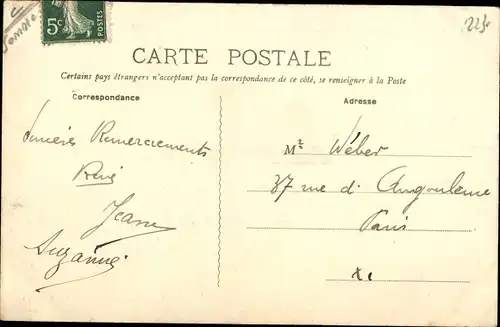 5c
POSTES
22f
CARTE POSTALE
Certains pays étrangers n'acceptant pas la correspondance de ce côté, se renseigner à la Poste
Correspondance
Adresse
Sincères Remerciements
René
Jeane
Suzanne
Mr Wéber
37 rue d'Angoulème
Paris